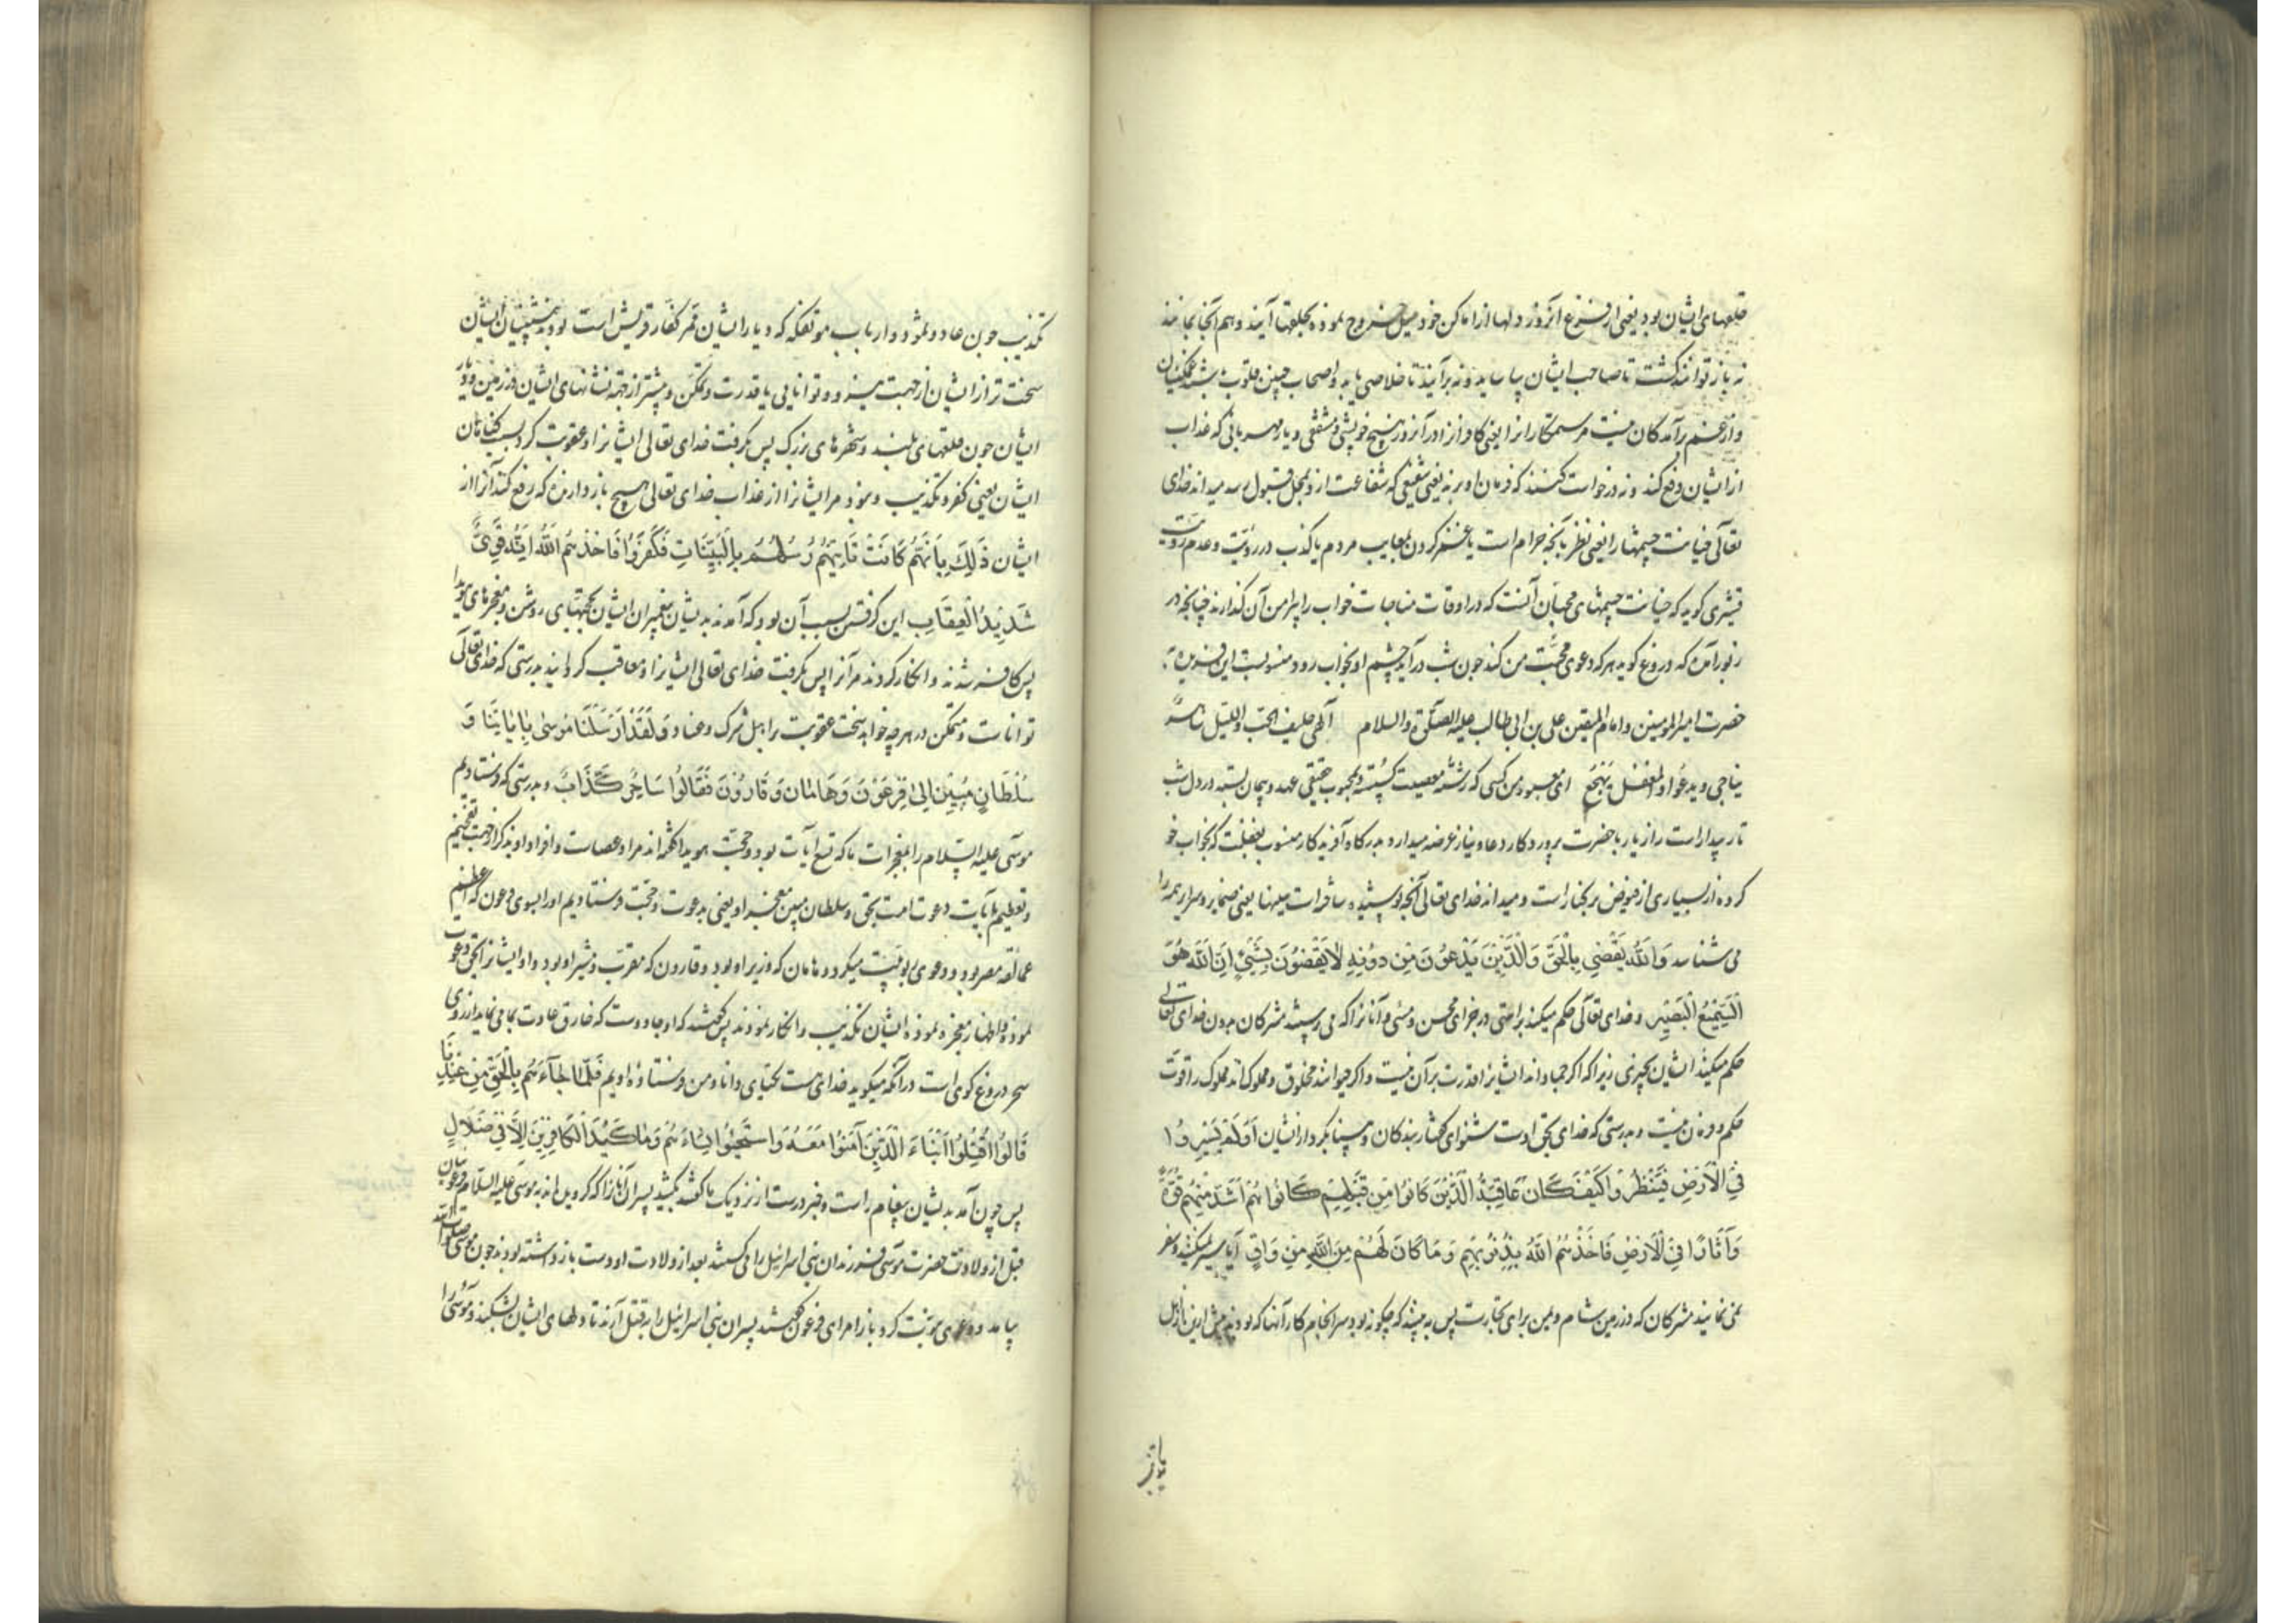 حلقهای ایشان بود یعنی از فزع آنروز دلها از اماکن خود میل خروج نموده بحلقها آیند و هم آنجا بمانند
نه باز توانند کشت تا صاحب ایشان بیاساید و نه برآیند تا خلاصی یابد و اصحاب چنین قلوب باشند غمکینان
و از غم برآمدکان نیست مر ستمکارانرا یعنی کافرانرا در آنروز هیچ خویشی و مشفقی و یار مهربانی که عذاب
از ایشان دفع کند و نه درخواست کننده که فرمان او برند یعنی شفیعی که شفاعت او بمحل قبول رسد میداند خدای
تعالی خیانت چشمها را یعنی نظر بآنچه حرام است یا غمز کردن بمعایب مردم یا کذب در رویت و عدم رویت
قشیری کوید که خیانت چشمهای محبان آنست که در اوقات مناجات خواب را پیرامن آن کذارند چنانچه در
زبور آمده که دروغ کوید هر که دعوی محبت من کند چون شب درآید چشم او بخواب رود و منسوبست این
حضرت امیرالمومنین و امام المتقین علی بن ابی طالب علیه الصلوة والسلام الهی حلیف الحب واللیل ساهر
یناجی و یدعو والمغفل یهجع ای معبود من کسی که رشته معصیت کسسته و بمحبوب حقیقی عهد و پیمان بسته در دل شب
تار بیدار است راز یار با حضرت پروردکار و دعا و نیاز عرضه میدارد بدرکاه آفریدکار منسوب بغفلت که بخواب خو
کرده از بسیاری از فیوض بر کنار است و میداند خدای تعالی آنچه پوشیده ساتر است سینها یعنی ضمایر و سرایر همه را
می شناسد وَاللّهُ یَقْضِی بِالْحَقِّ وَالَّذِینَ یَدْعُونَ مِنْ دُونِهِ لَا یَقْضُونَ بِشَیْءٍ إِنَّ اللّهَ هُوَ
السَّمِیعُ الْبَصِیرُ و خدای تعالی حکم میکند براستی در جزای محسن و مسی و آنانرا که می پرستند مشرکان بدون خدای تعالی
حکم نمیکنند ایشان بچیزی زیرا که اکر جماداند ایشانرا قدرت بر آن نیست و اکر حیوانند مخلوق و مملوک اند مملوک را قوت
حکم و فرمان نیست و بدرستی که خدای بحق اوست شنوای کفتار بندکان و بینا بکردار ایشان أَوَلَمْ یَسِیرُوا
فِی الْأَرْضِ فَیَنْظُرُوا کَیْفَ کَانَ عَاقِبَةُ الَّذِینَ کَانُوا مِنْ قَبْلِهِمْ کَانُوا هُمْ أَشَدَّ مِنْهُمْ قُوَّةً
وَآثَارًا فِی الْأَرْضِ فَأَخَذَهُمُ اللّهُ بِذُنُوبِهِمْ وَمَا کَانَ لَهُمْ مِنَ اللّهِ مِنْ وَاقٍ آیا سیر نمیکنند و سفر
نمی نمایند مشرکان که در زمین شام و یمن برای تجارت پس به بینند که چکونه بود سرانجام کار آنها که بودند پیش ازین از اهل
تکذیب چون عاد و ثمود و ارباب موتفکه که دیار ایشان ممر کفار قریش است بودند پیشینیان ایشان
سخت تر از ایشان از جهت نیرو و توانایی یا قدرت و تمکن و بیشتر از جهة نشانهای ایشان در زمین و دیار
ایشان چون قلعهای بلند و شهرهای بزرک پس بکرفت خدای تعالی ایشانرا و عقوبت کرد بسبب کناهان
ایشان یعنی کفر و تکذیب و نبود مر ایشانرا از عذاب خدای تعالی هیچ باز دارنده که رفع کند آنرا از
ایشان ذَلِکَ بِأَنَّهُمْ کَانَتْ تَأْتِیهِمْ رُسُلُهُمْ بِالْبَیِّنَاتِ فَکَفَرُوا فَأَخَذَهُمُ اللّهُ إِنَّهُ قَوِیٌّ
شَدِیدُ الْعِقَابِ این کرفتن بسبب آن بود که آمدند بدیشان پیغمبران ایشان بحجتهای روشن و معجزهای هویدا
پس کافر شدند و انکار کردند مر آنرا پس بکرفت خدای تعالی ایشانرا و معاقب کردانید بدرستی که خدای تعالی
تواناست و متمکن در هر چه خواهد سخت عقوبت بر اهل شرک و عناد وَلَقَدْ أَرْسَلْنَا مُوسَی بِآیَاتِنَا وَ
سُلْطَانٍ مُبِینٍ إِلَی فِرْعَوْنَ وَهَامَانَ وَقَارُونَ فَقَالُوا سَاحِرٌ کَذَّابٌ و بدرستی که فرستادیم
موسی علیه السلام را بمعجزات ما که تسع آیات بود و حجت هویدا که مراد عصاست و افراد او بذکر از جهت تفخیم
و تعظیم یا آیات دعوتست بحق و سلطان مبین معجزه او یعنی بدعوت و حجت فرستادیم او را بسوی فرعون که اعظم
عمالقه مصر بود و دعوی ربوبیت میکرد و هامان که وزیر او بود و قارون که مقرب و مشیر او بود و او ایشانرا بحق دعوت
نمود و اظهار معجزه نموده ایشان تکذیب و انکار نمودند پس کفتند که او جادوست که خارق عادت بما می نماید از روی
سحر دروغ کوی است در آنکه میکوید خدای هست یکتای دانا و من فرستاده اویم فَلَمَّا جَاءَهُمْ بِالْحَقِّ مِنْ عِنْدِنَا
قَالُوا اقْتُلُوا أَبْنَاءَ الَّذِینَ آمَنُوا مَعَهُ وَاسْتَحْیُوا نِسَاءَهُمْ وَمَا کَیْدُ الْکَافِرِینَ إِلَّا فِی ضَلَالٍ
پس چون آمد بدیشان پیغام راست و خبر درست از نزدیک ما کفتند بکشید پسران آنانرا که کرویده اند به موسی علیه السلام فرعونیان
قبل از ولادت حضرت موسی فرزندان بنی اسرائیل را می کشتند بعد از ولادت او دست باز داشته بودند چون موسی صلوات الله
بیامد و دعوی نبوت کرد باز امرای فرعون کفتند پسران بنی اسرائیل را بقتل آرند تا دلهای ایشان بشکند و موسی را